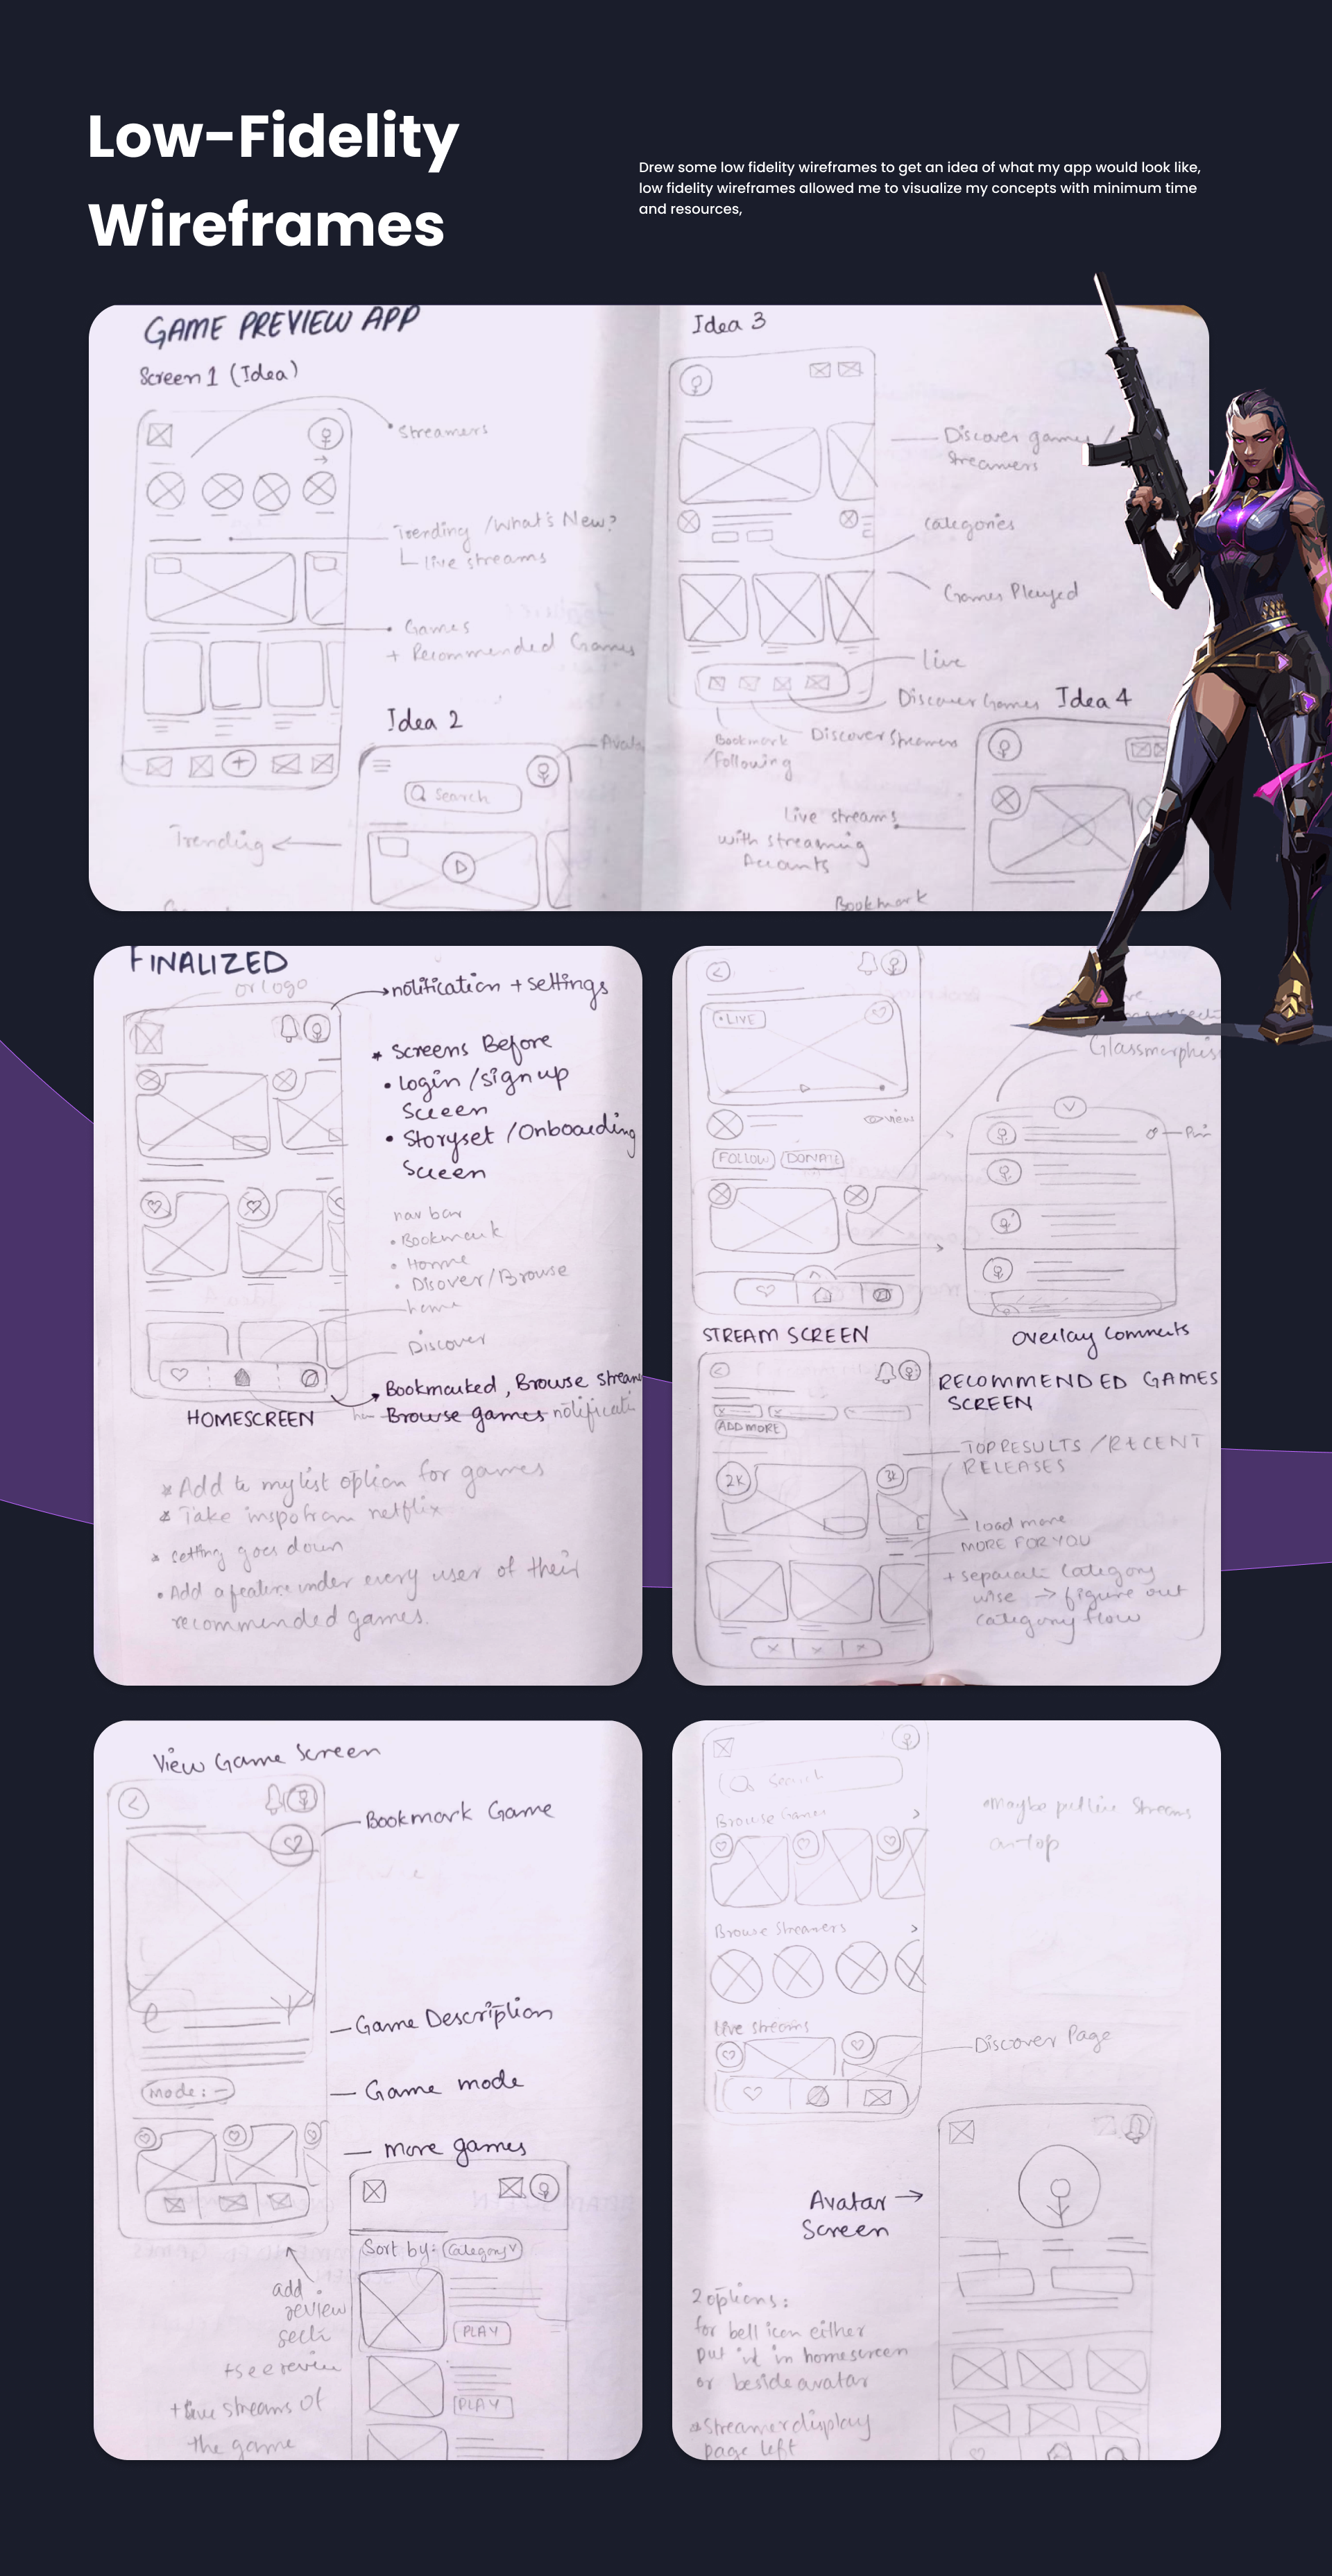 Low-Fidelity
Wireframes
Drew some low fidelity wireframes to get an idea of what my app would look like,
low fidelity wireframes allowed me to visualize my concepts with minimum time
and resources,
GAME PREVIEW APP
Screen 1 (Idea)
Streamers
Trending /What's New?
live streams
Games
+ Recommended Games
Idea 2
Search
Trending
Idea 3
Discover games /
Streamers
Categories
Games Played
Live
Discover Games
Discover Streamers
Bookmark
/Following
Idea 4
Live streams
with streaming
Accounts
Bookmark
FINALIZED
or logo
notification + settings
* Screens Before
• Login /sign up
Screen
• Storyset /Onboarding
Screen
nav bar
• Bookmark
• Home
• Disover/Browse
home
Discover
Bookmarked, Browse
Browse games
HOMESCREEN
* Add to my list option for games
* Take inspo from netflix
* setting goes down
• Add a feature under every user of their
recommended games.
• LIVE
view
FOLLOW
DONATE
STREAM SCREEN
Overlay Comments
RECOMMENDED GAMES
SCREEN
ADD MORE
2K
3K
TOP RESULTS / RECENT
RELEASES
load more
MORE FOR YOU
+ separate category
wise → figure out
category flow
View Game Screen
Bookmark Game
Game Description
Mode: -
Game mode
More games
Sort by: Category v
PLAY
PLAY
add
review
+ see review
+ live streams of
the game
Search
Browse Games >
Maybe put live streams
on top
Browse Streamers >
Live streams
Discover Page
Avatar →
Screen
2 options:
for bell icon either
put it in homescreen
or beside avatar
* Streamer display
page left